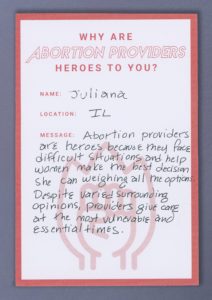 WHY ARE
ABORTION PROVIDERS
HEROES TO YOU?
NAME: Juliana
LOCATION: IL
MESSAGE: Abortion providers
are heroes because they face
difficult situations and help
women make the best decision
she can weighing all the options.
Despite varied surrounding
opinions, providers give care
at the most vulnerable and
essential times.